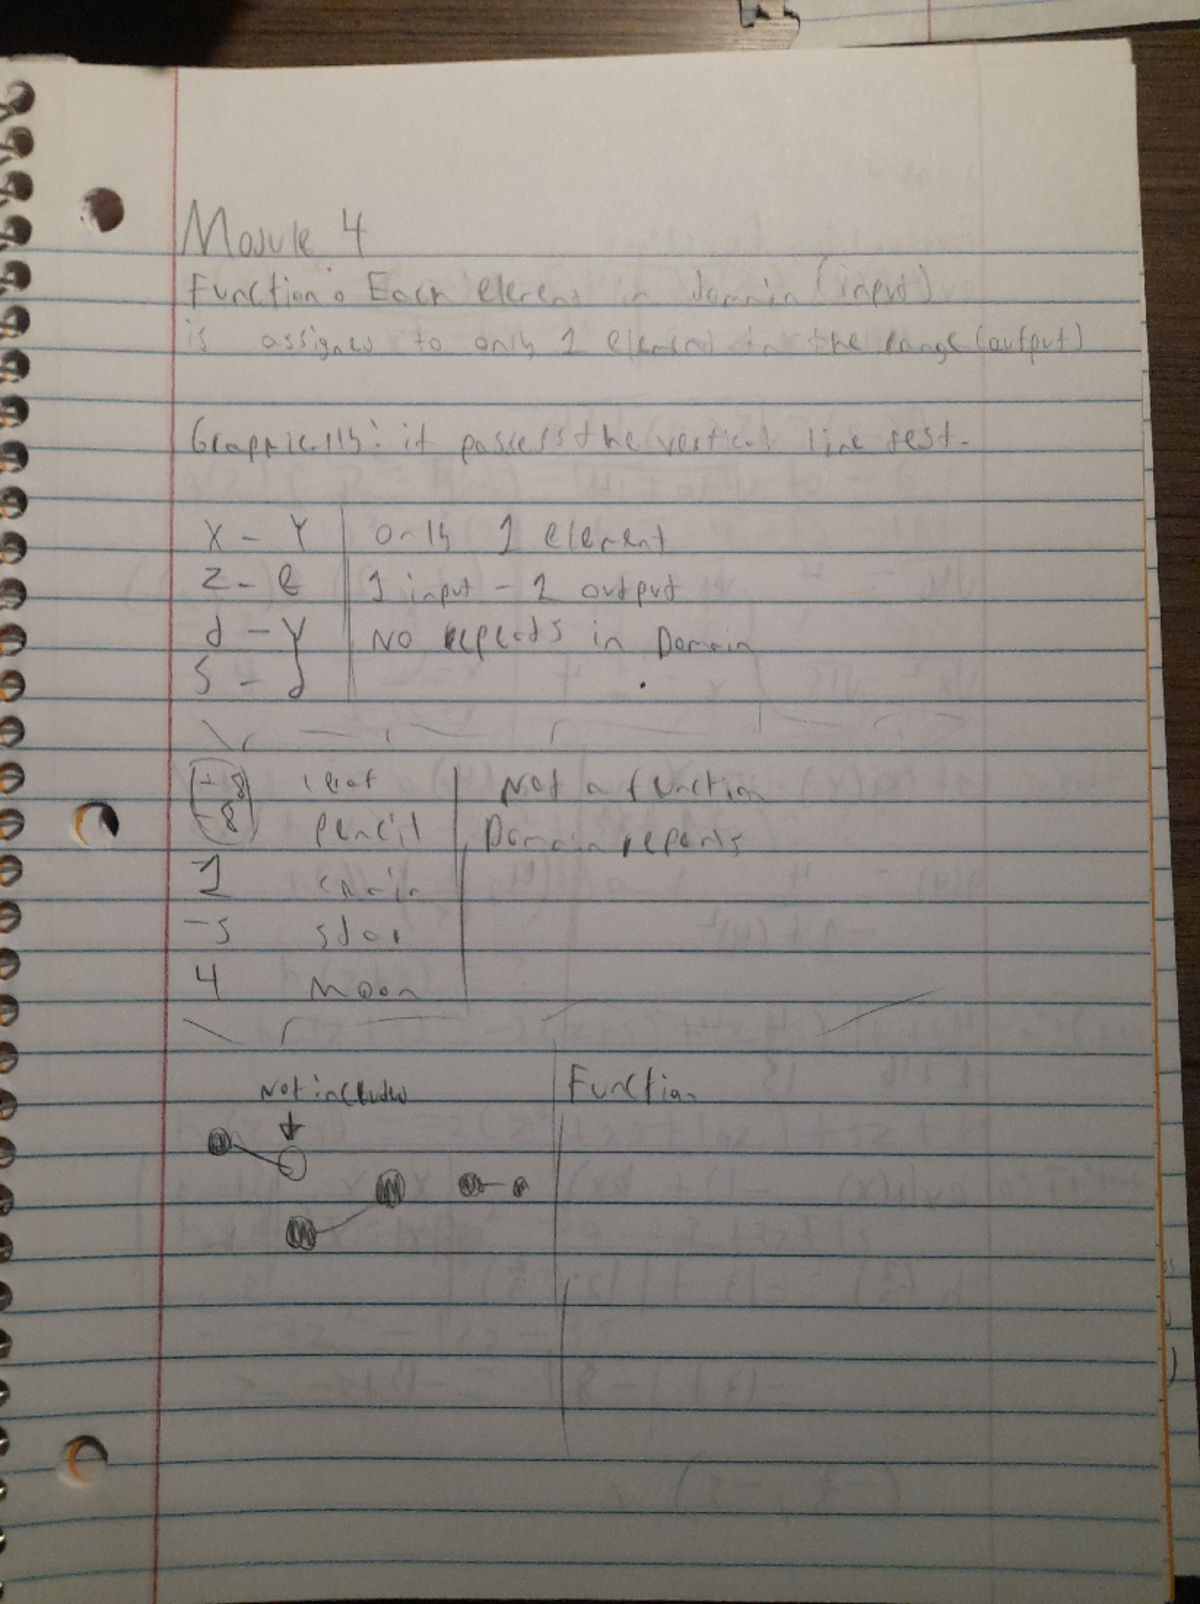 Module 4
Function: Each element in domain (input)
is assigned to only 1 element in the range (output)
Graphically: if passess the vertical line test.
X - Y only 1 element
Z - B 1 input - 1 output
d - Y No repeats in Domain
S - d
-8 leaf Not a function
-8 pencil Domain repeats
1 chain
-5 star
4 Moon
Not included Function